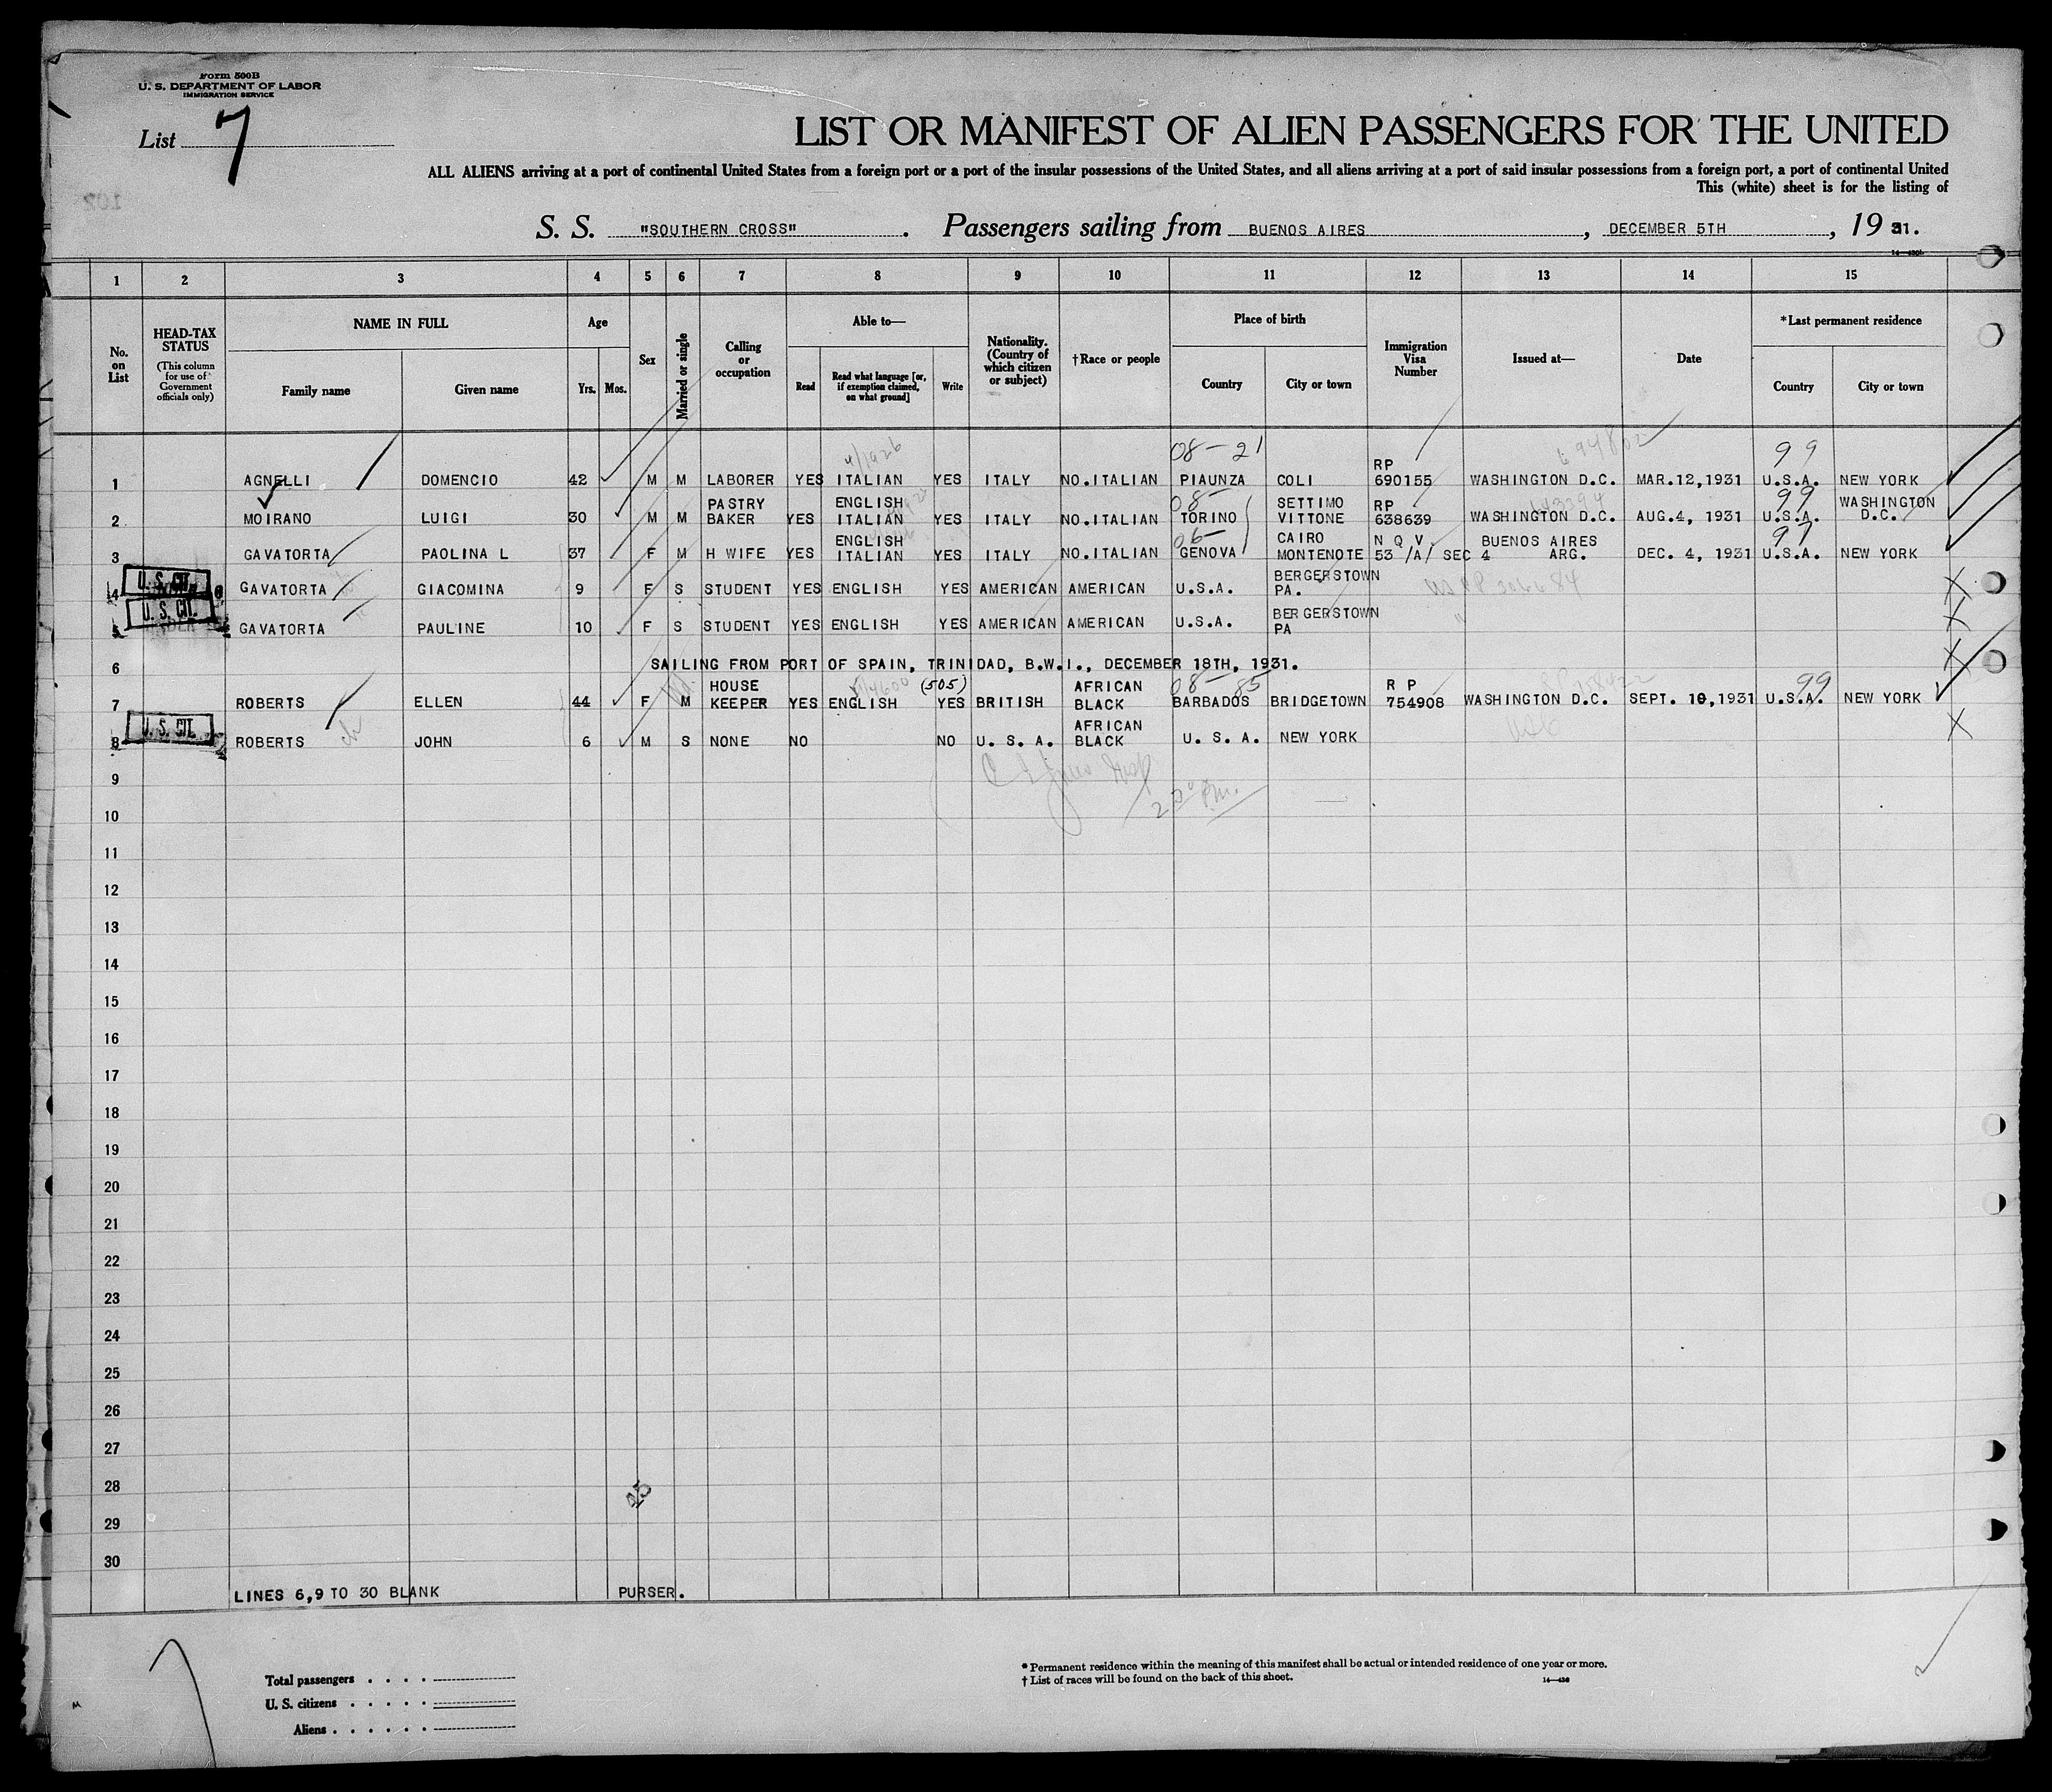 Form 500B
U. S. DEPARTMENT OF LABOR
IMMIGRATION SERVICE
List 7
LIST OR MANIFEST OF ALIEN PASSENGERS FOR THE UNITED
ALL ALIENS arriving at a port of continental United States from a foreign port or a port of the insular possessions of the United States, and all aliens arriving at a port of said insular possessions from a foreign port, a port of continental United
This (white) sheet is for the listing of
S. S. "SOUTHERN CROSS". Passengers sailing from BUENOS AIRES, DECEMBER 5TH, 1931.
1 2 3 4 5 6 7 8 9 10 11 12 13 14 15
No. on List
HEAD-TAX STATUS (This column for use of Government officials only)
NAME IN FULL Family name Given name
Age Yrs. Mos.
Sex
Married or single
Calling or occupation
Able to— Read Read what language [or, if exemption claimed, on what ground] Write
Nationality. (Country of which citizen or subject)
†Race or people
Place of birth Country City or town
Immigration Visa Number
Issued at—
Date
*Last permanent residence Country City or town
08-21 99
1 AGNELLI DOMENCIO 42 M M LABORER YES ITALIAN YES ITALY NO.ITALIAN PIAUNZA COLI RP 690155 WASHINGTON D.C. MAR.12,1931 U.S.A. NEW YORK
08- 99
2 MOIRANO LUIGI 30 M M PASTRY BAKER YES ENGLISH ITALIAN YES ITALY NO.ITALIAN TORINO SETTIMO VITTONE RP 638639 WASHINGTON D.C. AUG.4, 1931 U.S.A. WASHINGTON D.C.
3 GAVATORTA PAOLINA L 37 F M H WIFE YES ENGLISH ITALIAN YES ITALY NO.ITALIAN GENOVA CAIRO MONTENOTE N Q V. 53 /A/ SEC 4 BUENOS AIRES ARG. DEC. 4, 1931 U.S.A. NEW YORK
U. S. CIT.
4 GAVATORTA GIACOMINA 9 F S STUDENT YES ENGLISH YES AMERICAN AMERICAN U.S.A. BERGERSTOWN PA.
U. S. CIT.
5 GAVATORTA PAULINE 10 F S STUDENT YES ENGLISH YES AMERICAN AMERICAN U.S.A. BERGERSTOWN PA
6 SAILING FROM PORT OF SPAIN, TRINIDAD, B.W.I., DECEMBER 18TH, 1931.
(505) 08- 85 99
7 ROBERTS ELLEN 44 F M HOUSE KEEPER YES ENGLISH YES BRITISH AFRICAN BLACK BARBADOS BRIDGETOWN R P 754908 WASHINGTON D.C. SEPT. 10,1931 U.S.A. NEW YORK
U. S. CIT.
8 ROBERTS JOHN 6 M S NONE NO NO U. S. A. AFRICAN BLACK U. S. A. NEW YORK
9
10
11
12
13
14
15
16
17
18
19
20
21
22
23
24
25
26
27
28
29
30
LINES 6,9 TO 30 BLANK PURSER.
Total passengers
U. S. citizens
Aliens
* Permanent residence within the meaning of this manifest shall be actual or intended residence of one year or more.
† List of races will be found on the back of this sheet.